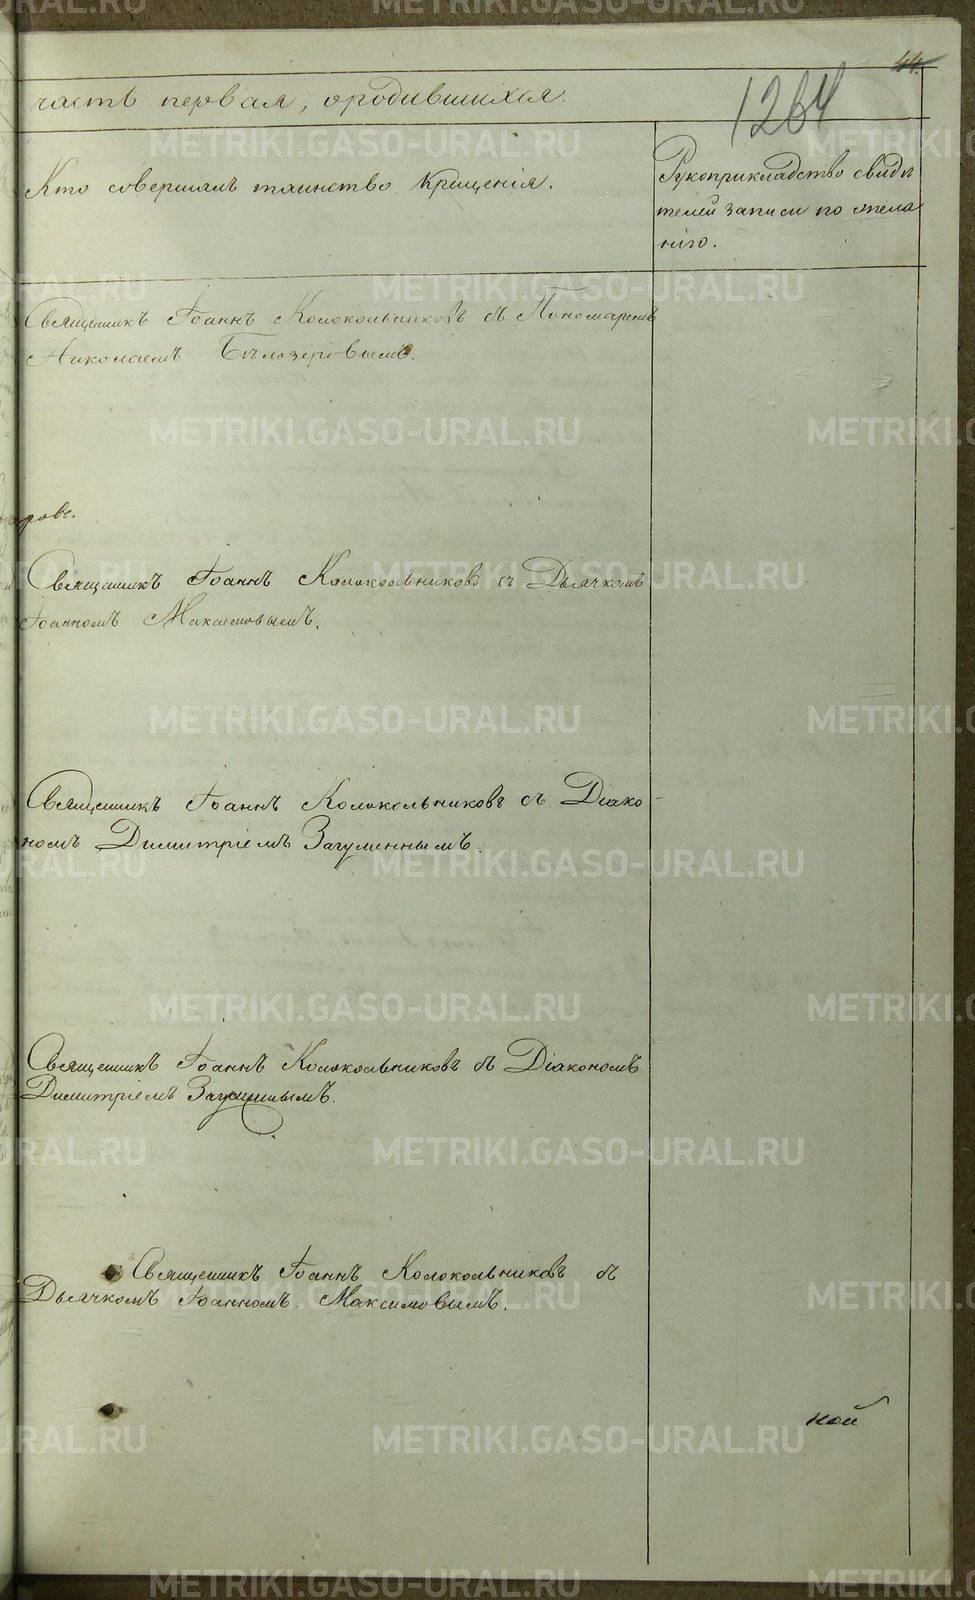 44.
1264
часть первая, о родившихся.
Кто совершалъ таинство крещенія.
Рукоприкладство свидѣ
телей записи по жела
нію.
Священникъ Іоаннъ Колокольниковъ съ Пономаремъ
Николаемъ Бѣлозеровымъ.
рове.
Священникъ Іоаннъ Колокольниковъ съ Дьячкомъ
Іоанномъ Максимовымъ.
Священникъ Іоаннъ Колокольниковъ съ Діако-
номъ Димитріемъ Загуменнымъ.
Священникъ Іоаннъ Колокольниковъ съ Діакономъ
Димитріемъ Загуменнымъ.
Священникъ Іоаннъ Колокольниковъ съ
Дьячкомъ Іоанномъ Максимовымъ.
ной
METRIKI.GASO-URAL.RU